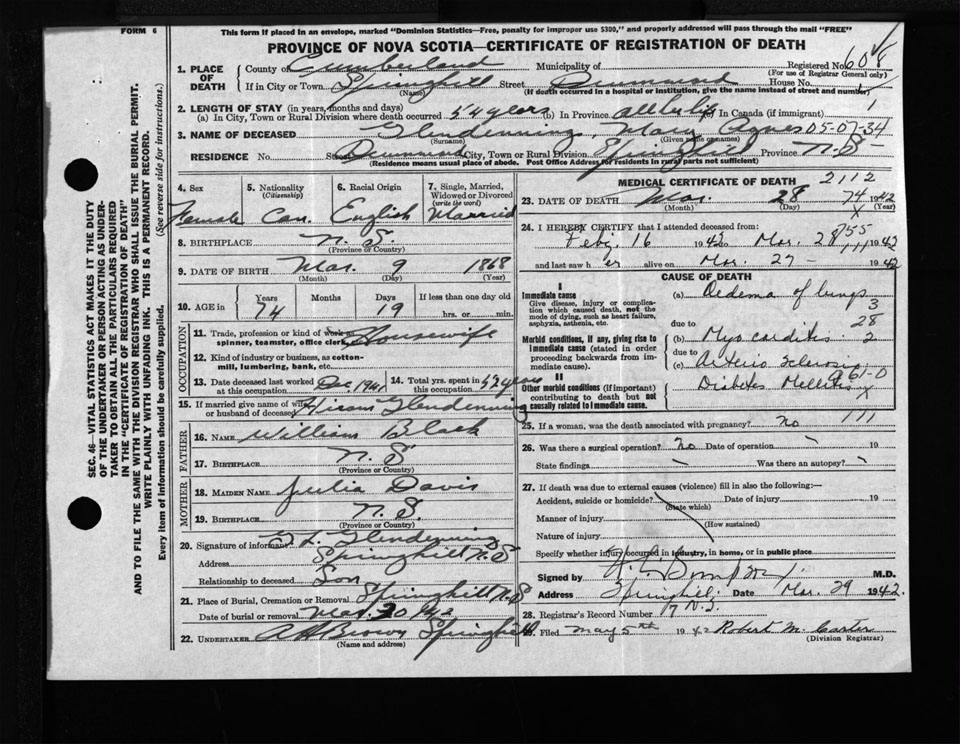 FORM 6
This form if placed in an envelope, marked "Dominion Statistics—Free, penalty for improper use $300," and properly addressed will pass through the mail "FREE"
PROVINCE OF NOVA SCOTIA—CERTIFICATE OF REGISTRATION OF DEATH
SEC. 46—VITAL STATISTICS ACT MAKES IT THE DUTY
OF THE UNDERTAKER OR PERSON ACTING AS UNDER-
TAKER TO OBTAIN ALL THE PARTICULARS REQUIRED
IN THE "CERTIFICATE OF REGISTRATION OF DEATH"
AND TO FILE THE SAME WITH THE DIVISION REGISTRAR WHO SHALL ISSUE THE BURIAL PERMIT.
WRITE PLAINLY WITH UNFADING INK. THIS IS A PERMANENT RECORD.
Every item of information should be carefully supplied. (See reverse side for instructions.)
1. PLACE OF DEATH County of Cumberland Municipality of Registered No. 608
(For use of Registrar General only)
If in City or Town Springhill Street Drummond House No.
(Name) (If death occurred in a hospital or institution, give the name instead of street and number)
2. LENGTH OF STAY (in years, months and days)
(a) In City, Town or Rural Division where death occurred 54 years (b) In Province All her life (c) In Canada (if immigrant)
3. NAME OF DECEASED Glendenning, Mary Agnes 05-07-34
(Surname) (Given name or names)
RESIDENCE No. Street Drummond City, Town or Rural Division Springhill Province N.S.
(Residence means usual place of abode. Post Office Address for residents in rural parts not sufficient)
4. Sex Female
5. Nationality (Citizenship) Can.
6. Racial Origin English
7. Single, Married, Widowed or Divorced (write the word) Married
8. BIRTHPLACE N. S.
(Province or Country)
9. DATE OF BIRTH Mar. 9 1868
(Month) (Day) (Year)
10. AGE in Years Months Days If less than one day old
74 19 hrs. or min.
OCCUPATION
11. Trade, profession or kind of work as spinner, teamster, office clerk, Housewife
12. Kind of industry or business, as cotton-mill, lumbering, bank, etc.
13. Date deceased last worked at this occupation Dec 1941
14. Total yrs. spent in this occupation 52 years
15. If married give name of wife or husband of deceased Hiram Glendenning
FATHER
16. NAME William Black
17. BIRTHPLACE N. S.
(Province or Country)
MOTHER
18. MAIDEN NAME Julia Davis
19. BIRTHPLACE N. S.
(Province or Country)
20. Signature of informant Glendenning
Address Springhill N. S
Relationship to deceased Son
21. Place of Burial, Cremation or Removal Springhill N. S
Date of burial or removal Mar. 30 1942
22. UNDERTAKER Brown Springhill
(Name and address)
MEDICAL CERTIFICATE OF DEATH 2112
23. DATE OF DEATH Mar. 28 74 1942
(Month) (Day) (Year)
24. I HEREBY CERTIFY that I attended deceased from:
Feby 16 1942 to Mar. 28 1942
and last saw h er alive on Mar. 27 - 1942
CAUSE OF DEATH
I
Immediate cause
Give disease, injury or complication which caused death, not the mode of dying, such as heart failure, asphyxia, asthenia, etc.
(a) Oedema of lungs
3
28
due to
Morbid conditions, if any, giving rise to immediate cause (stated in order proceeding backwards from immediate cause).
(b) Myocarditis 2
due to
(c) Arterio Sclerosis
II
Other morbid conditions (if important) contributing to death but not causally related to immediate cause.
Diabetes Mellitus
25. If a woman, was the death associated with pregnancy? no 111
26. Was there a surgical operation? no Date of operation - 19
State findings - Was there an autopsy? -
27. If death was due to external causes (violence) fill in also the following:—
Accident, suicide or homicide? Date of injury 19
(State which)
Manner of injury
(How sustained)
Nature of injury
Specify whether injury occurred in industry, in home, or in public place
Signed by M.D.
Address Springhill Date Mar. 29 1942.
28. Registrar's Record Number
29. Filed May 5th 1942 Robert M. Carter
(Division Registrar)